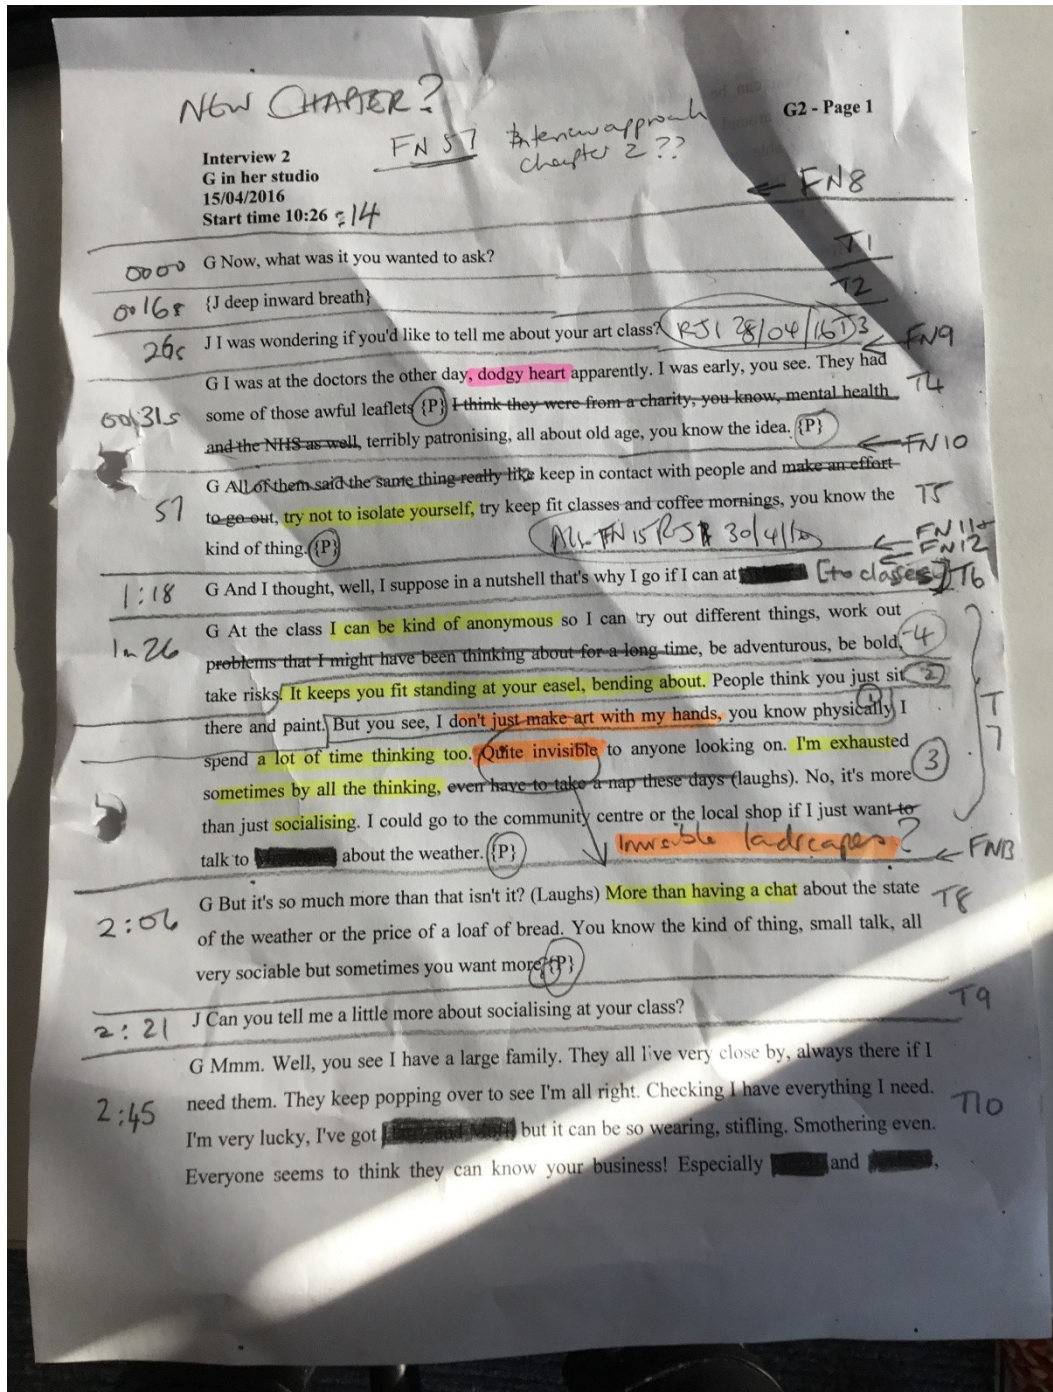 NEW CHAPTER?
G2 - Page 1
FN 57 Interview approach
chapter 2??
Interview 2
G in her studio
15/04/2016
Start time 10:26 :14
← FN8
0000 G Now, what was it you wanted to ask? T1
0016s {J deep inward breath} T2
26s J I was wondering if you'd like to tell me about your art class? RJ1 28/04/16 T3
← FN9
G I was at the doctors the other day, dodgy heart apparently. I was early, you see. They had
00,31s some of those awful leaflets {P} I think they were from a charity, you know, mental health T4
and the NHS as well, terribly patronising, all about old age, you know the idea. {P}
← FN10
G All of them said the same thing really like keep in contact with people and make an effort
57 to go out, try not to isolate yourself, try keep fit classes and coffee mornings, you know the T5
kind of thing. {P} FN15 30/4/16
← FN11
← FN12
1:18 G And I thought, well, I suppose in a nutshell that's why I go if I can at [to classes] T6
1m26 G At the class I can be kind of anonymous so I can try out different things, work out
problems that I might have been thinking about for a long time, be adventurous, be bold, 4
take risks. It keeps you fit standing at your easel, bending about. People think you just sit 2
there and paint. But you see, I don't just make art with my hands, you know physically I 1 T7
spend a lot of time thinking too. Quite invisible to anyone looking on. I'm exhausted
sometimes by all the thinking, even have to take a nap these days (laughs). No, it's more 3
than just socialising. I could go to the community centre or the local shop if I just want to
talk to about the weather. {P} Invisible ladscapes?
← FN13
2:06 G But it's so much more than that isn't it? (Laughs) More than having a chat about the state T8
of the weather or the price of a loaf of bread. You know the kind of thing, small talk, all
very sociable but sometimes you want more? {P}
2:21 J Can you tell me a little more about socialising at your class? T9
G Mmm. Well, you see I have a large family. They all live very close by, always there if I
2:45 need them. They keep popping over to see I'm all right. Checking I have everything I need. T10
I'm very lucky, I've got but it can be so wearing, stifling. Smothering even.
Everyone seems to think they can know your business! Especially and ,